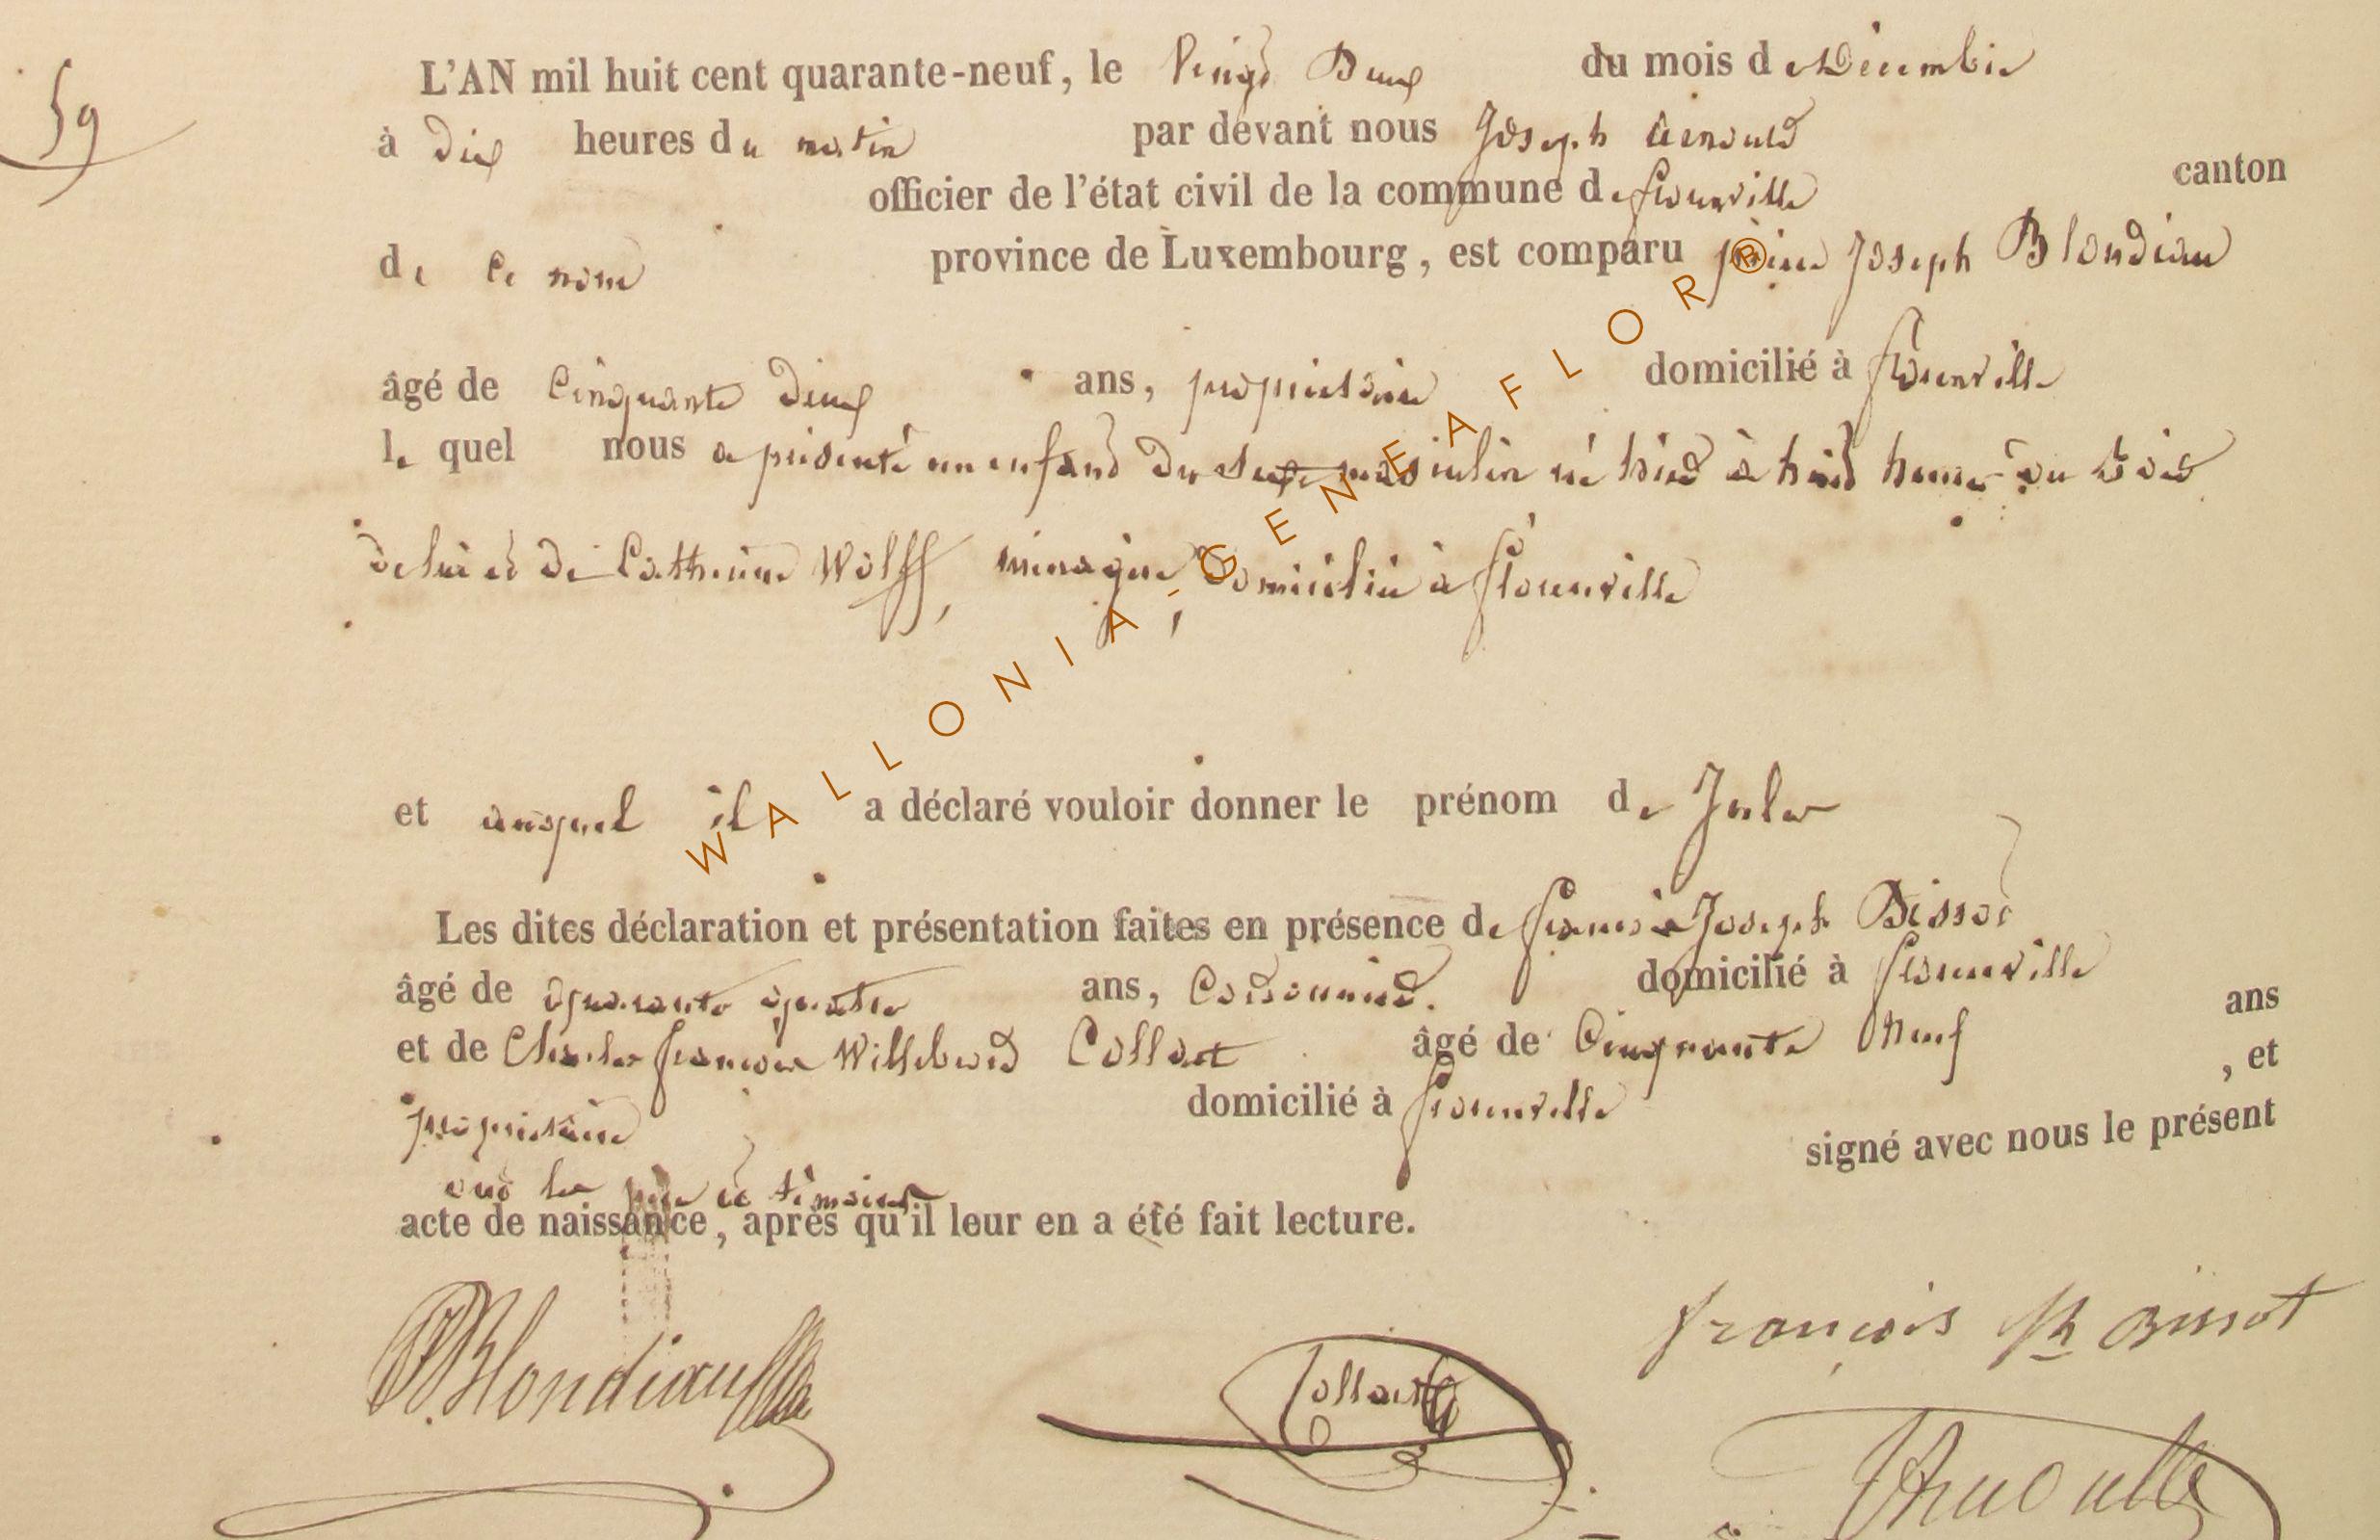 59
L'AN mil huit cent quarante-neuf, le Vingt Deux du mois de Décembre
à Dix heures du matin par devant nous Joseph Arnould
officier de l'état civil de la commune de florenville canton
de Ce nom province de Luxembourg, est comparu pierre Joseph Blondiau
âgé de Cinquante Deux ans, propriétaire domicilié à florenville
le quel nous a présenté un enfant du sexe masculin né hier à huit heures du soir
de lui et de Catherine Wolff, ménagère, domiciliée à florenville
et auquel il a déclaré vouloir donner le prénom de Jules
Les dites déclaration et présentation faites en présence de françois Joseph Bissot
âgé de quarante quatre ans, Cordonnier. domicilié à florenville
et de Charles françois Willebrord Collart âgé de Cinquante Neuf ans
propriétaire domicilié à florenville , et
ont les père et témoins signé avec nous le présent
acte de naissance, après qu'il leur en a été fait lecture.
Blondiau Collart françois Jh Bissot
JArnould
WALLONIA-GENEAFLOR®